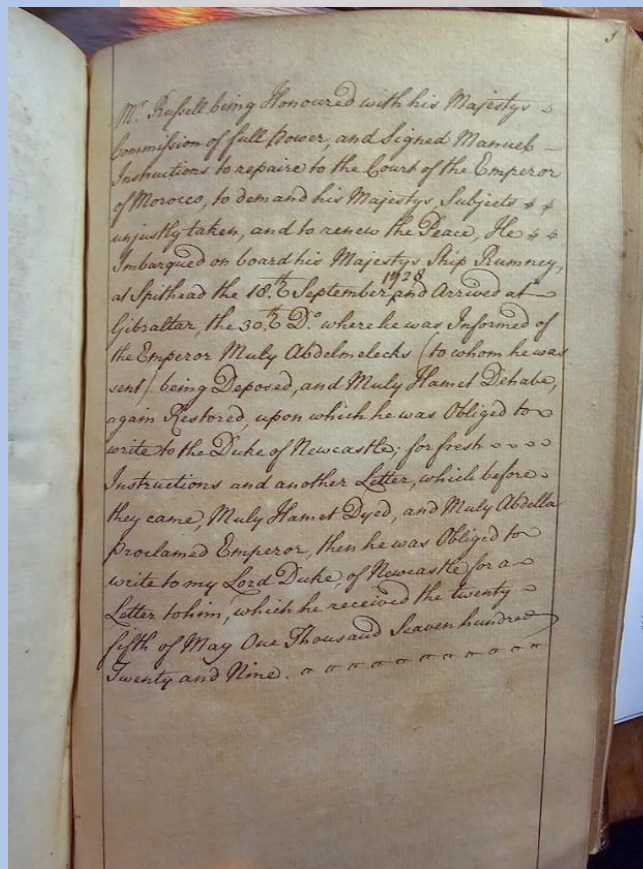 Mr. Russell being Honoured with his Majestys
Commission of full Power, and Signed Manuel
Instructions to repaire to the Court of the Emperor
of Morocco, to demand his Majestys, Subjects
unjustly taken, and to renew the Peace, He
Imbarqued on board his Majestys Ship Rumney,
at Spithead the 18.th September, 1728 and Arrived at
Gibraltar, the 30.th Do. where he was Informed of
the Emperor Muly Abdelmelechs (to whom he was
sent) being Deposed, and Muly Hamet Dehabe,
again Restored, upon which he was Obliged to
write to the Duke of Newcastle; for fresh
Instructions and another Letter, which before
they came, Muly Hamet Dyed, and Muly Abdella
Proclamed Emperor, then he was Obliged to
write to my Lord Duke, of Newcastle for a
Letter to him, which he received the twenty
fifth of May One Thousand Seaven hundred
Twenty and Nine.